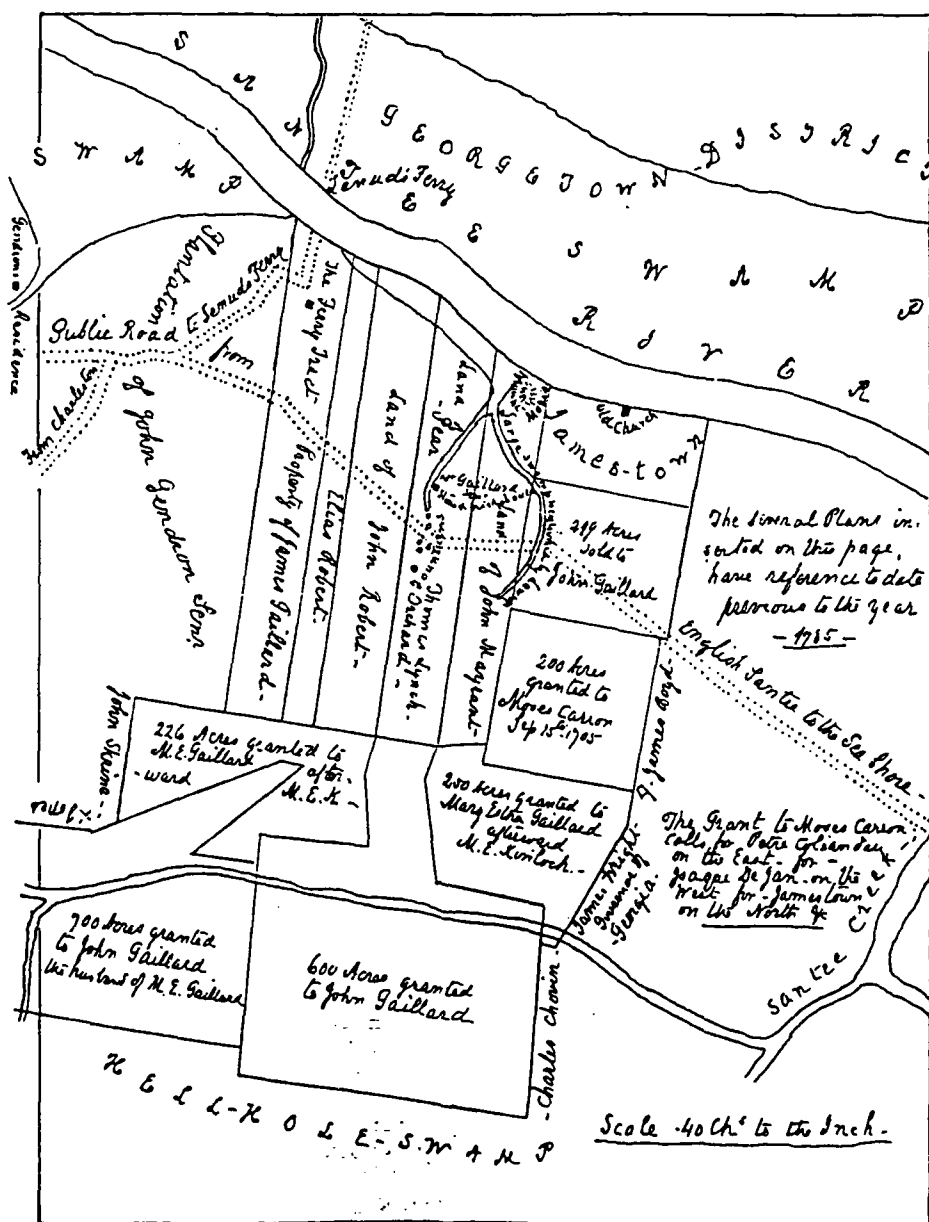 SANTEE RIVER
GEORGETOWN DISTRICT
SWAMP
SWAMP
Lenuds Ferry
Gendrons Residence
Plantation
of John Gendron Senr
Public Road
to Lenuds Ferry
from
From Charleston
The Ferry Tract
Property of James Gaillard-
Elias Robert-
Land of
John Robert-
Land of
Thomas Lynch-
Orchard-
Gaillard
Land
of John Mayrant-
old Church
James-town
289 Acres
sold to
John Gaillard
200 Acres
granted to
Moses Carron
Sep 15th 1705
The several Plans in-
serted on this page,
have reference to date
previous to the year
-1785-
English Santee to the Sea Shore-
John Skrine-
226 Acres granted to
M.E. Gaillard after-
-ward M.E.K-
250 Acres granted to
Mary Esther Gaillard
afterward
M.E. Kinloch--
James Boyd-
James Wright-
Governor of
-Georgia.
The Grant to Moses Carron
Calls for Petre
on the East- for-
De Jan- on the
West for- Jamestown
on the North &c
Santee Creek
700 Acres granted
to John Gaillard
the husband of M.E. Gaillard
600 Acres granted
to John Gaillard
-Charles Chovin-
HELL-HOLE-SWAMP
Scale -40 Chs to the Inch-